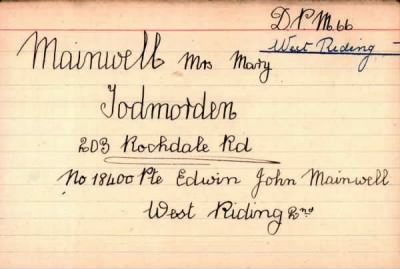 D P M.66
West Riding
Mainwell Mrs Mary
Todmorden
203 Rochdale Rd
No 18400 Pte Edwin John Mainwell
West Riding 2nd